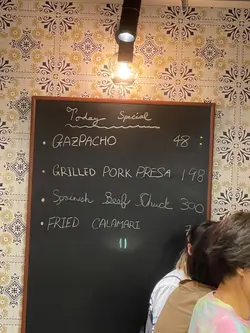 Today Special
• GAZPACHO 48 :
• GRILLED PORK PRESA 198
• Spanish Beef Chuck 300
• FRIED CALAMARI